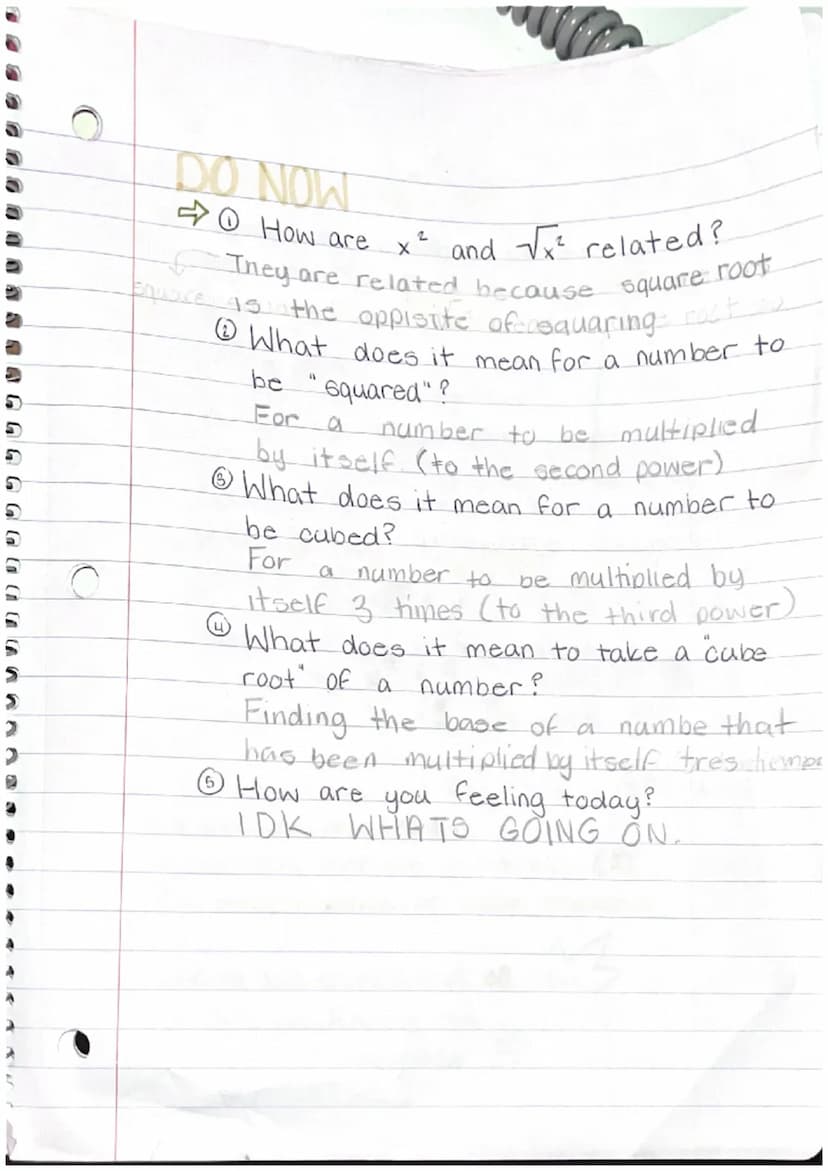 DO NOW
⇒ ① How are x² and √x² related?
They are related because square root
is the oppisite of squaring
② What does it mean for a number to
be "squared"?
For a number to be multiplied
by itself (to the second power)
③ What does it mean for a number to
be cubed?
For a number to be multiplied by
itself 3 times (to the third power)
④ What does it mean to take a "cube
root" of a number?
Finding the base of a numbe that
has been multiplied by itself tres
⑤ How are you feeling today?
IDK WHATS GOING ON.